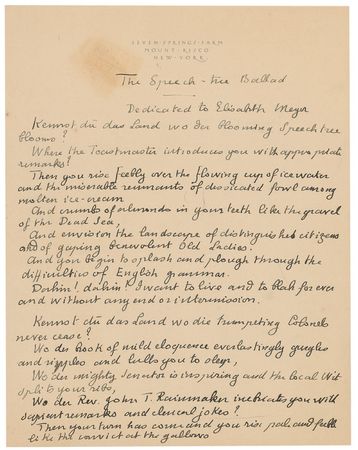 SEVEN SPRINGS FARM
MOUNT KISCO
NEW YORK
The Speech-tree Ballad
Dedicated to Elisabeth Meyer
Kennst du das Land wo der blooming Speechtree
blooms?
Where the Toastmaster introduces you with appropriate
remarks?
Then you rise feebly over the flowing cup of icewater
and the miserable remnants of dissicated fowl among
molten ice-cream
And crumbs of almonds in your teeth like the gravel
of the Dead Sea,
And envision the landscape of distinguished citizens
and of gaping benevolent Old Ladies.
And you begin to splash and plough through the
difficulties of English grammar.
Dahin! dahin! I want to live and to blah for ever
and without any end or intermission.
Kennst du das Land wo die trumpeting Colonels
never cease?
Wo der book of mild eloquence everlastingly gurgles
and ripples and lulls you to sleep,
Wo der mighty Senator is inspiring and the local Wit
splits your ribs,
Wo der Rev. John T. Rainmaker inebriates you with
sapient remarks and clerical jokes?
Then your turn has come and you rise pale and feeble
like the convict at the gallows